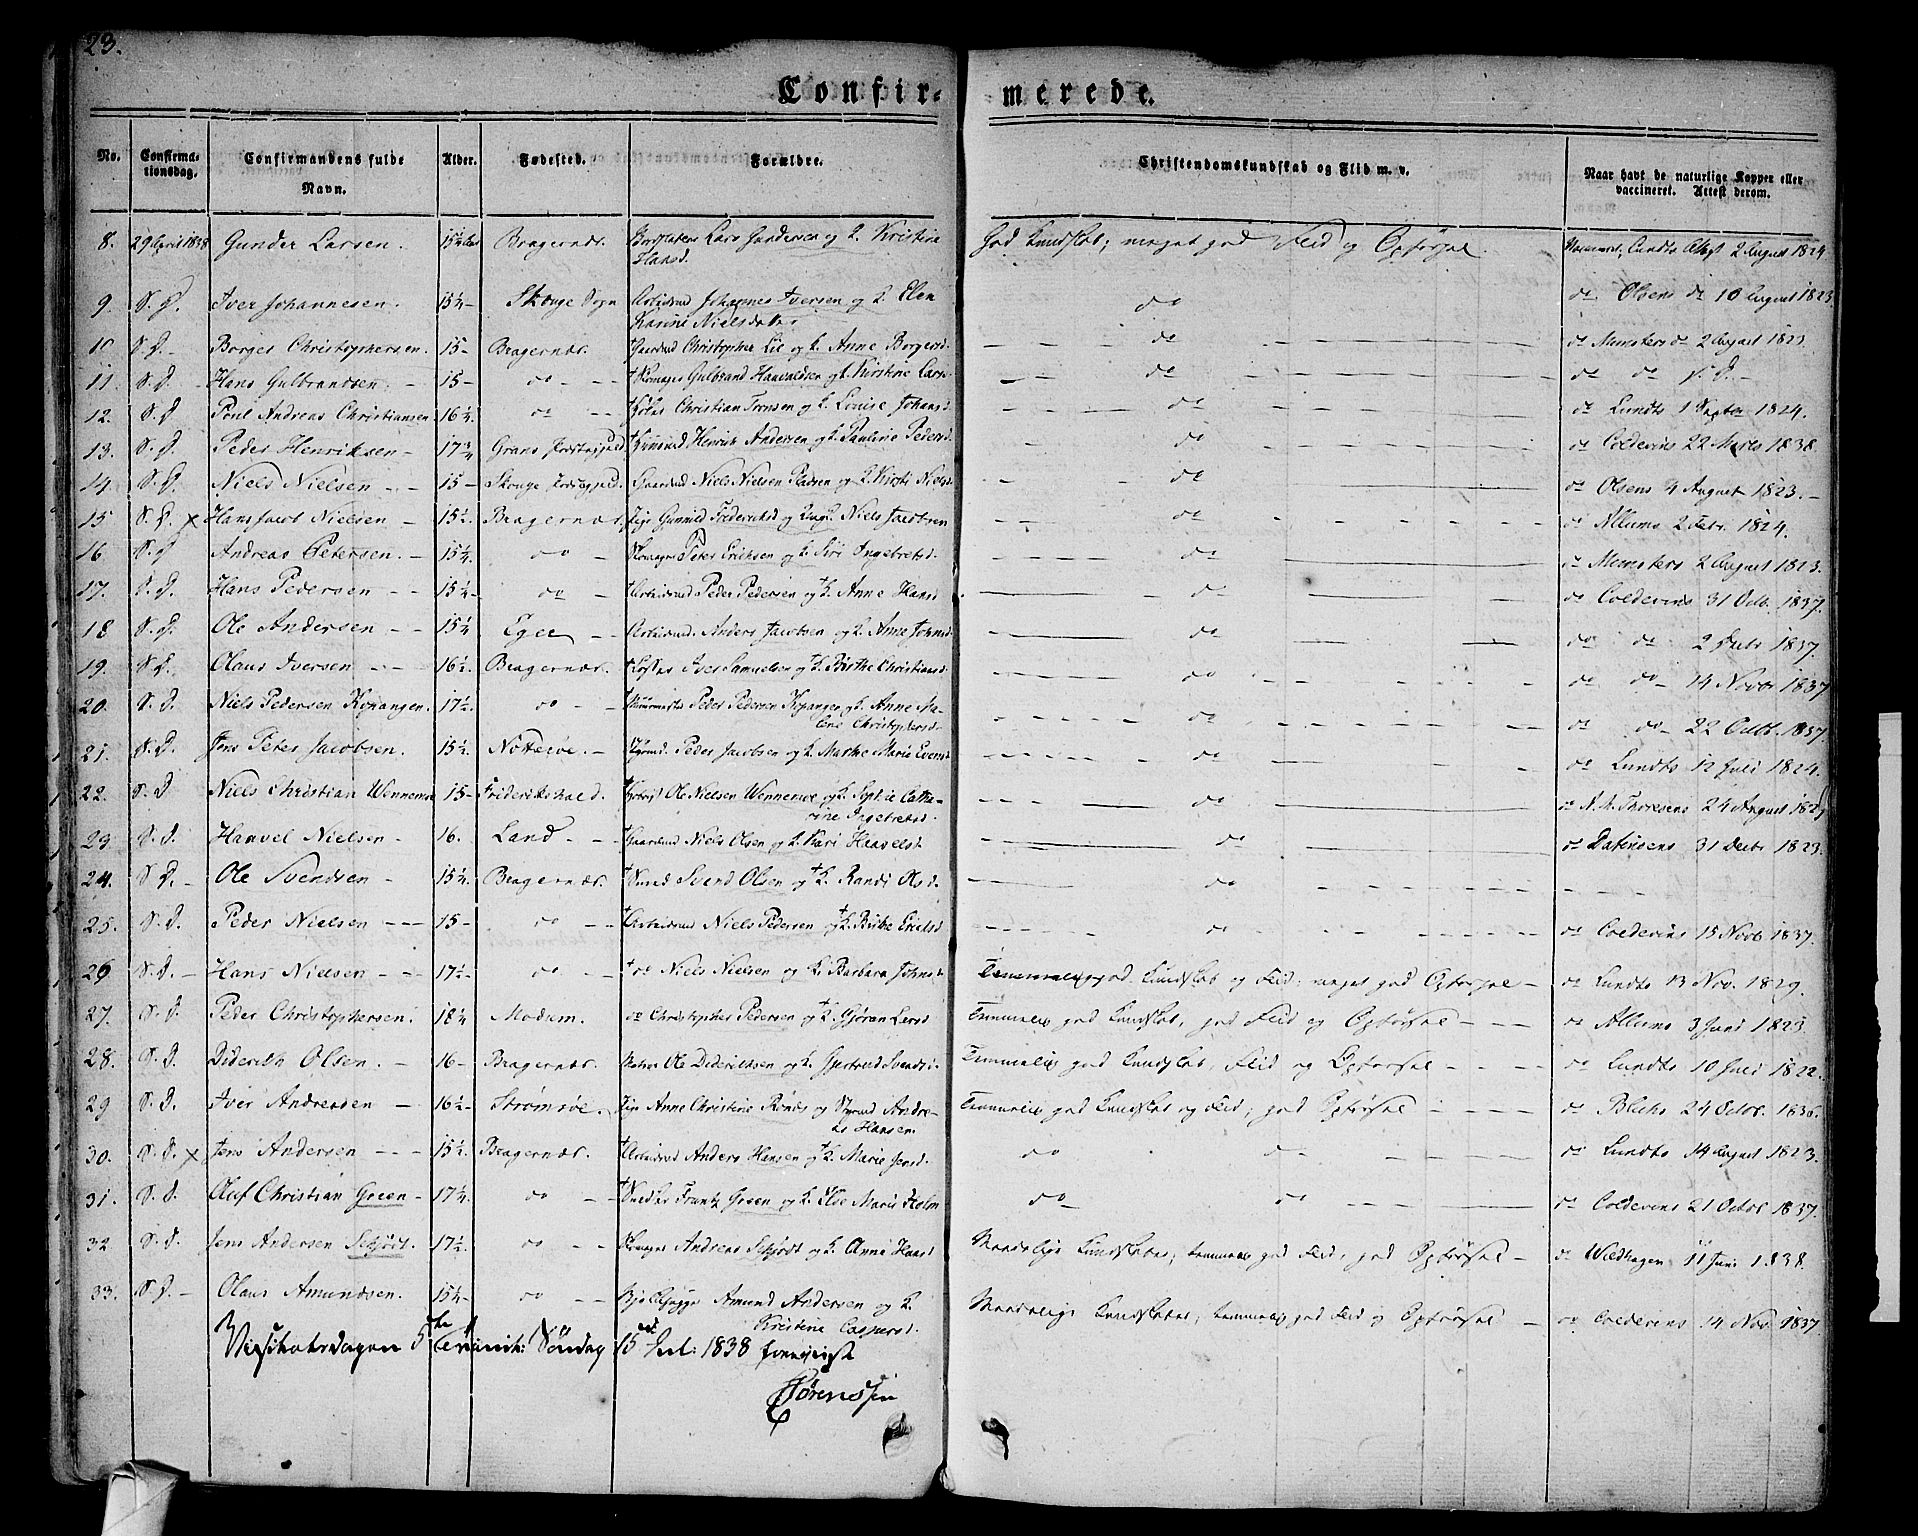 23.
Confir- merede.
No. Confirmationsdag. Confirmandens fulde Navn. Alder. Fødested. Forældre. Christendomskundskab og Flid m. v. Naar havt de naturlige Kopper eller vaccineret. Attest derom.
8. 29 April 1838 Gunder Larsen. 15 Bragernæs. Lars Gundersen og K. Kristine Hansd. God Kundskab; meget god Flid og Opførsel. Lundts Attest 2 August 1824
9. S. D. Iver Johannesen. 15 1/4 Skouge Sogn Arbeidsmd Johannes Iversen og K. Elen Karine Nielsdatter do do Olsens do 10 August 1823
10 S. D. Borger Christophersen. 15 Bragernæs. Gaardmd Christopher Lie og K. Anne Borgersd. do do Munsters do 2 August 1823
11. S. D. Hans Gulbrandsen. 15 do † Skomager Gulbrand Haavaldsen og K. Kirstine Larsd do do do S. D.
12. S. D. Poul Andreas Christiansen 16 1/2 do Christian Tronsen og K. Louise Johansd do do Lundts 1 Septbr 1824.
13. S. D. Peder Henriksen 17 3/4 Grans Præstegjeld Henrik Andersen og K. Pauline Pedersd do do Coldevins 22 Marts 1838.
14. S. D. Niels Nielsen 15 Skouge Præstegjeld. Gaardmd Niels Nielsen og K. Kirsti Nielsd do do Olsens 4 August 1823.
15 S. D. x Hans Jacob Nielsen 15 1/2 Bragernæs. Pige Gunnild Frederiksd og Ungk. Niels Jacobsen do do Allums 2 Febr. 1824.
16. S. D. Andreas Petersen. 15 1/4 do Skomager Peter Eriksen og K. Siri Ingebretsd. do do Munsters 2 August 1823.
17. S. D. Hans Pedersen 15 1/2 do † Arbeidsmd Peder Pedersen og † K. Anne Hansd do do Coldevins 31 Octb. 1837.
18 S. D. Ole Andersen 15 1/4 Eger Arbeidsmd. Anders Jacobsen og K. Anne Johnsd. do do do 2 Febr 1837.
19. S. D. Olaus Iversen 16 1/2 Bragernæs. Iver Samuelsen og † K. Birthe Christiansd do do do 14 Novbr 1837
20. S. D. Niels Pedersen Kopangen. 17 1/2 do Muurmester Peder Pedersen Kopangen og K. Anne Malene Christophersd. do do do 22 Octbr. 1837.
21. S. D. Jens Peter Jacobsen. 15 1/2 Nøtterøe. Peder Jacobsen og K. Marthe Marie Evensd do do Lundts 12 Juli 1824.
22. S. D. Niels Christian Wennemoe 15 Friderikshald. Ole Nielsen Wennemoe og K. Sophie Catharine Ingebretsd. do do N. A. Thoresens 24 August 182
23. S. D. Hanvel Nielsen 16. Land Gaardmd Niels Olsen og K. Kari Haavelsd. do do 31 Decbr 1823.
24. S. D. Ole Svendsen 15 1/4 Bragernæs. † Svend Olsen og † K. Randi Olsd. do
25. S. D. Peder Nielsen 15 do † Arbeidsmd Niels Pedersen † K. Birthe Eriksd do do Coldevins 15 Novb. 1837.
26 S. D. Hans Nielsen 17 1/2 do † do Niels Nielsen og K. Barbara Johnsd Temmelig god Kundskab og Flid; meget god Opførsel do Lundts 13 Nov. 1829.
27. S. D. Peder Christophersen. 18 1/4 Modum. do Christopher Pedersen og † K. Gjøran Larsd Temmelig god Kundskab, god Flid og Opførsel do Allums 3 Juni 1823.
28. S. D. Diderich Olsen. 16 Bragernæs. Ole Dideriksen og K. Gjertrud Svendsd. Temmelig god Kundskab, Flid og Opførsel do Lundts 10 Juli 1822.
29 S. D. Iver Andreasen 16 1/2 Strømsøe. Pige Anne Christine Rönds og Styrmd Andreas Hansen. Temmelig god Kundskab og Flid; god Opførsel do Blichs 24 Octbr. 1836.
30. S. D. x Jens Andersen 15 1/2 Bragernæs. † Arbeidsmd Anders Hansen og † K. Marie Jensd. do do do Lundts 14 August 1823.
31. S. D. Oluf Christian Green 17 1/4 do Snedker Frantz Green og K. Else Marie Holm do do do Coldevins 21 Octbr 1837.
32 S. D. Jens Andersen Schjødt. 17 1/2 do Skomager Andreas Schjødt og K. Anne Hansd Maadelige Kundskaber; temmelig god Flid, god Opførsel do Wildhagen 11 Juni 1838.
33. S. D. Olaus Amundsen. 15 1/4 do Amund Andersen og K. Kristine Caspersd. Maadelige Kundskaber; temmelig god Flid og Opførsel do Coldevins 14 Nov. 1837.
Visitatsdagen 5te Trinit: Söndag 15de Jul: 1838 foreviist
Sörenssen